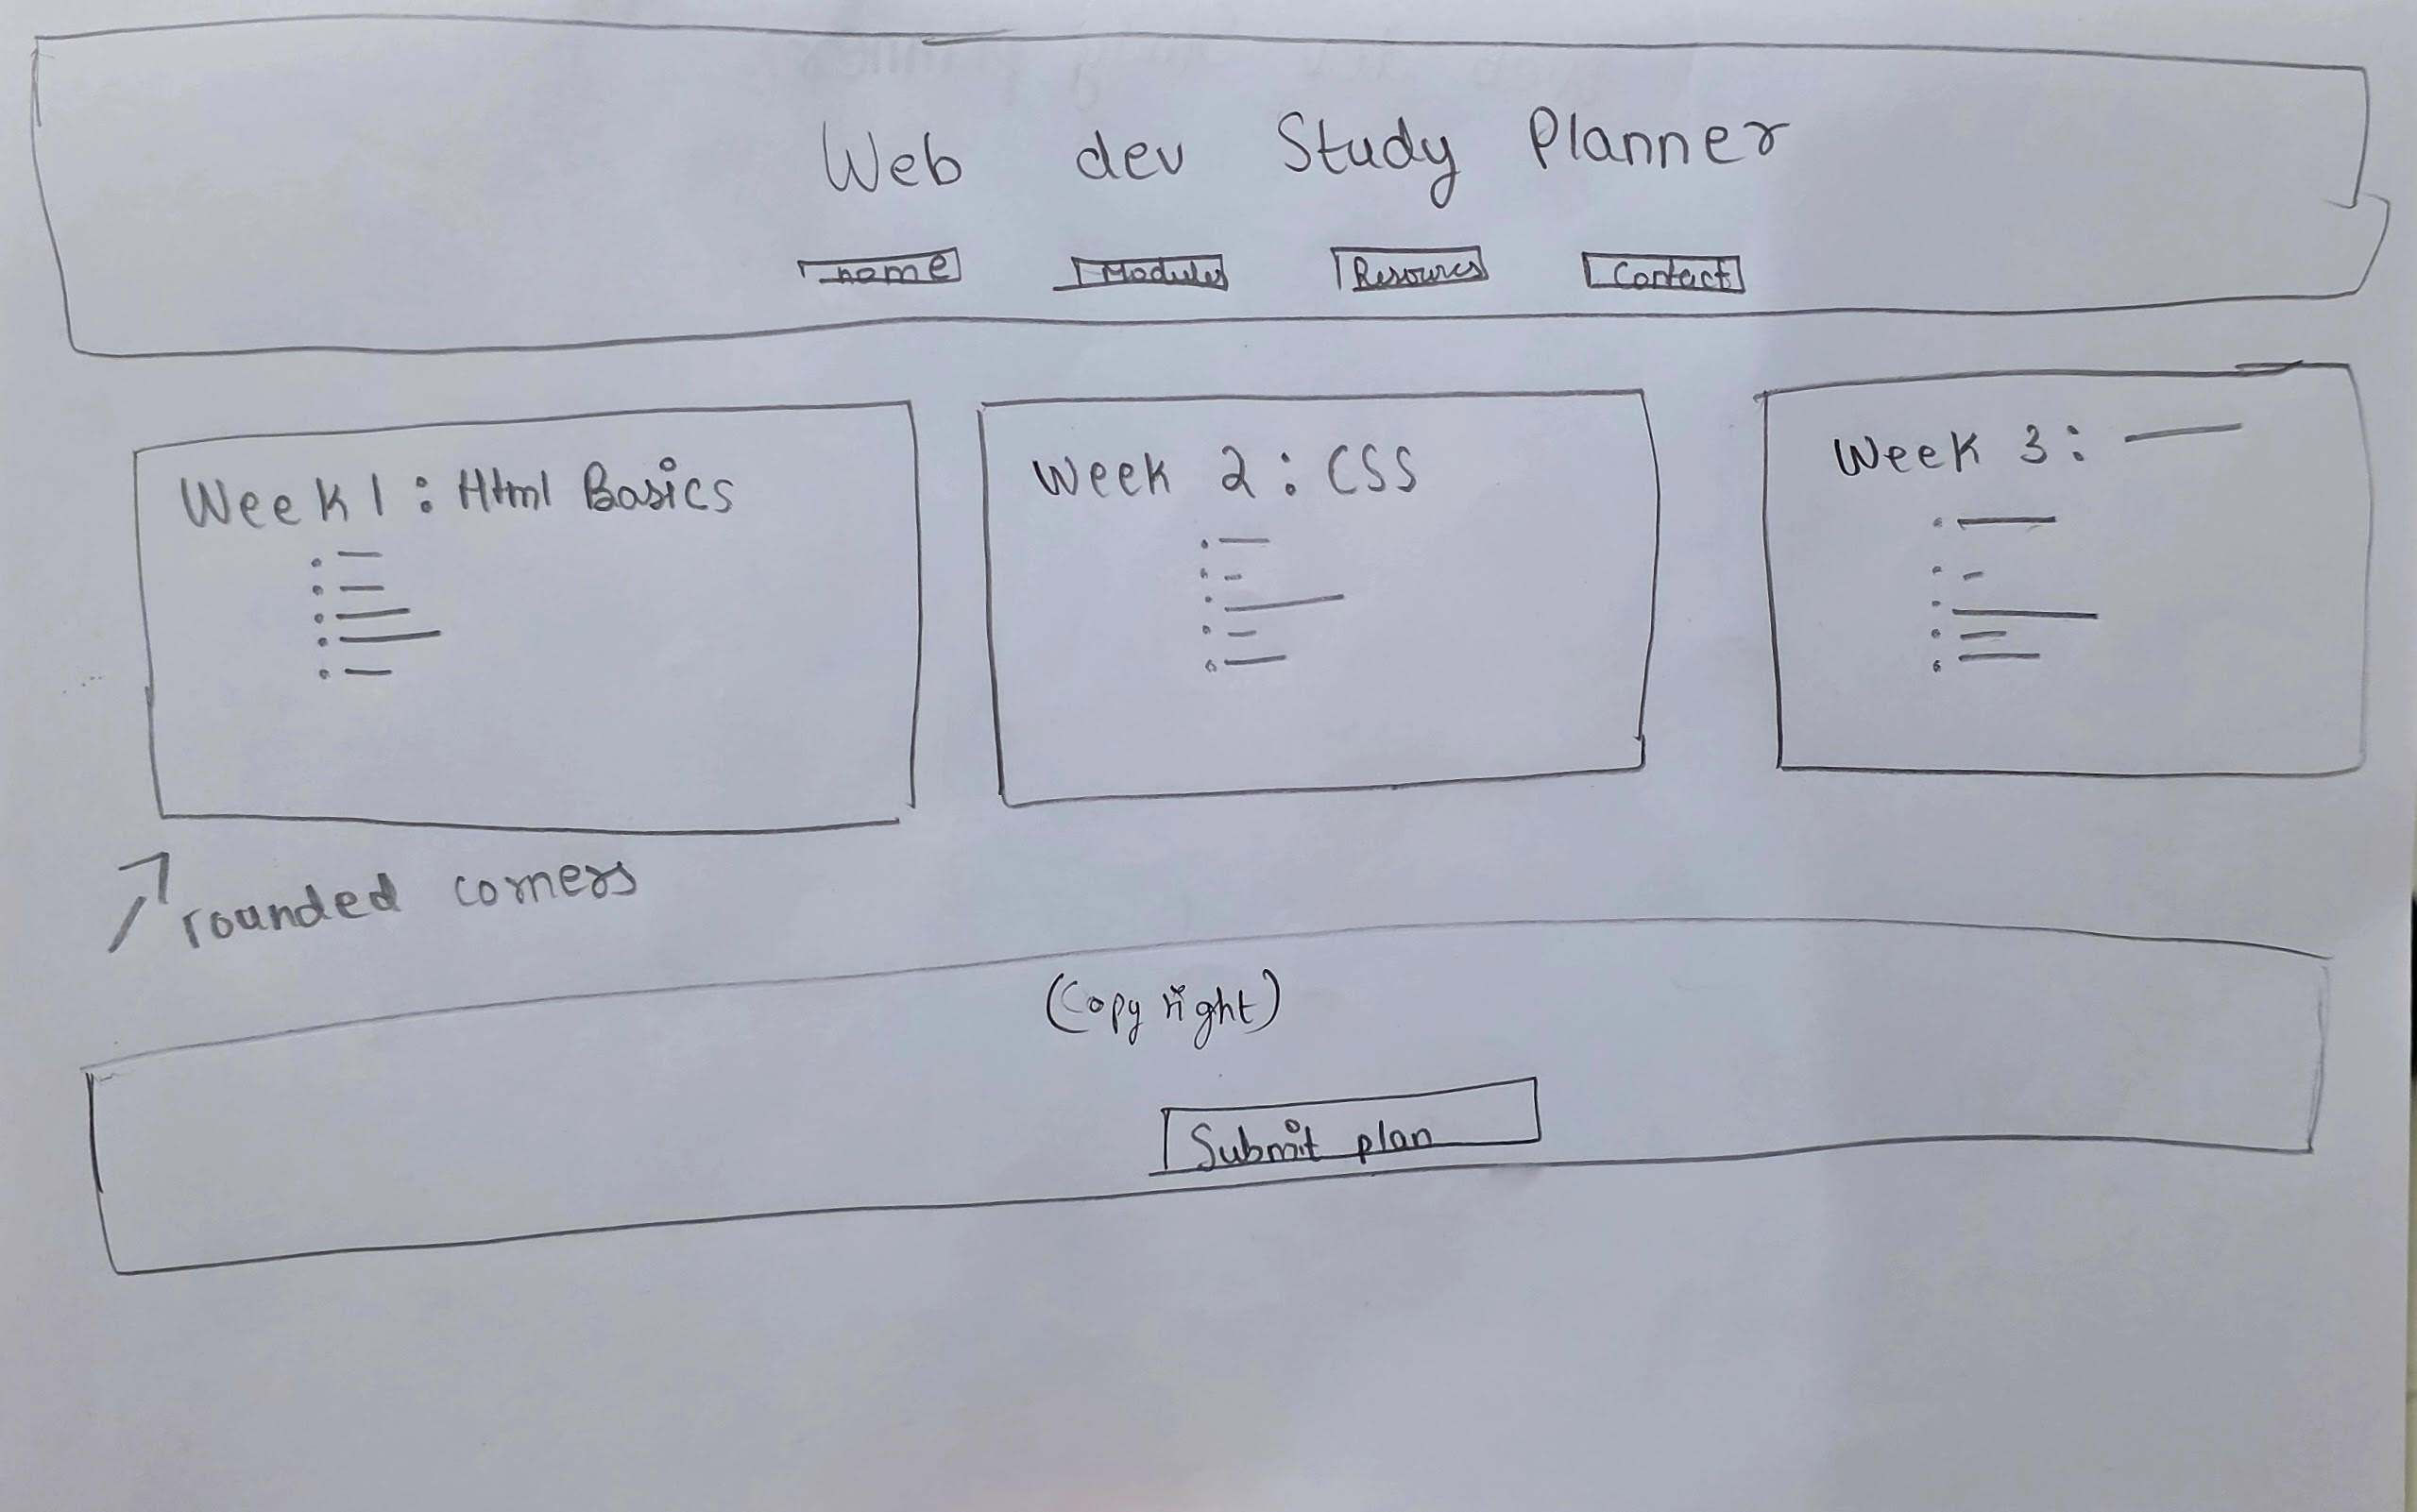 Web dev Study Planner
home Modules Resources Contact
Week 1 : Html Basics
Week 2 : CSS
Week 3 :
rounded corners
(Copy right)
Submit plan